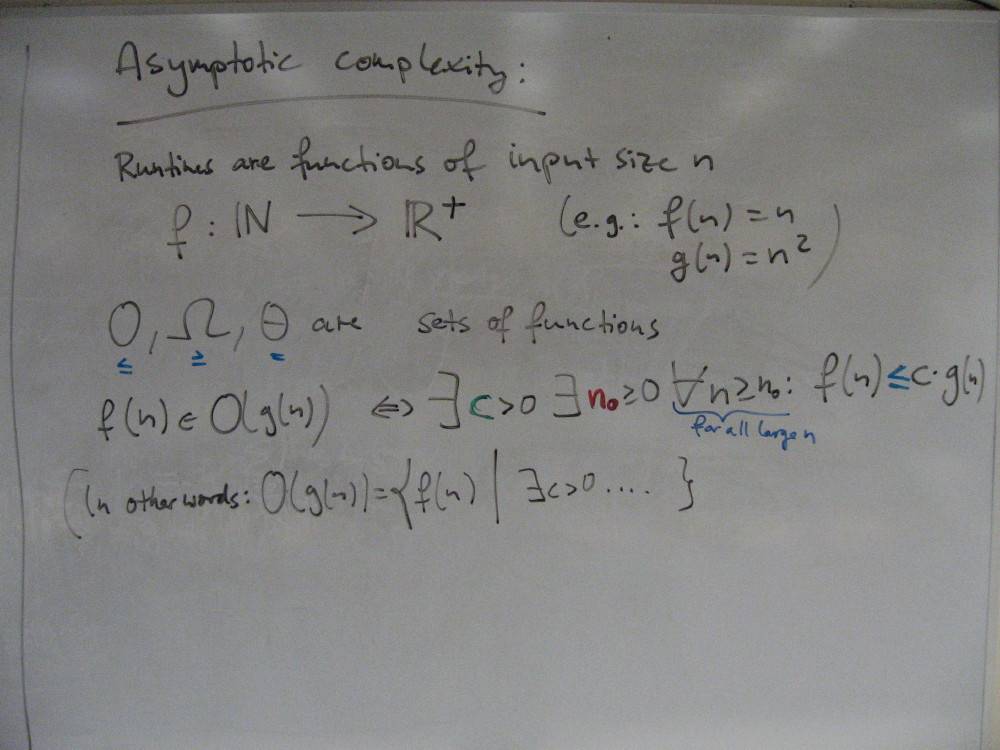 Asymptotic complexity:
Runtimes are functions of input size n
f : ℕ ⟶ ℝ⁺ (e.g.: f(n) = n
g(n) = n²)
O, Ω, Θ are sets of functions
≤ ≥ =
f(n) ∈ O(g(n)) ⇔ ∃ c > 0 ∃ n₀ ≥ 0 ∀ n ≥ n₀: f(n) ≤ c · g(n)
for all large n
(In other words: O(g(n)) = { f(n) | ∃ c > 0 .... }